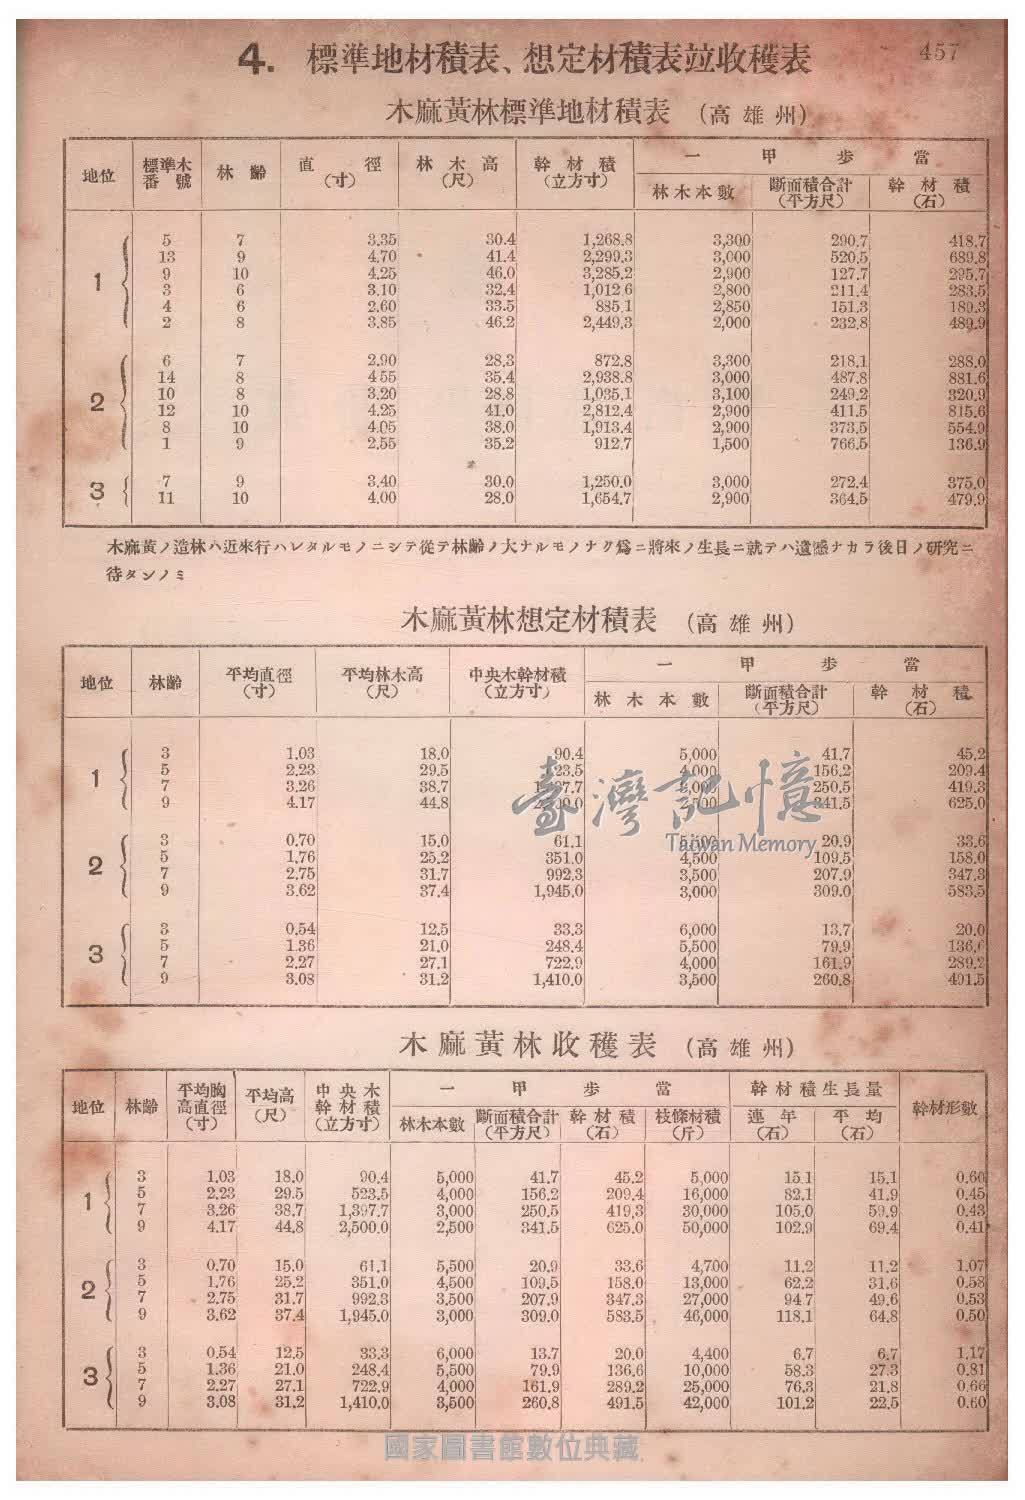 457
4. 標準地材積表、想定材積表竝收穫表
木麻黃林標準地材積表 (高雄州)
地位 標準木番號 林齡 直徑(寸) 林木高(尺) 幹材積(立方寸) 一甲步當
林木本數 斷面積合計(平方尺) 幹材積(石)
1 5 7 3.35 30.4 1,268.8 3,300 290.7 418.7
13 9 4.70 41.4 2,299.3 3,000 520.5 689.8
9 10 4.25 46.0 3,285.2 2,900 127.7 295.7
3 6 3.10 32.4 1,012.6 2,800 211.4 283.5
4 6 2.60 33.5 885.1 2,850 151.3 189.3
2 8 3.85 46.2 2,449.3 2,000 232.8 489.9
2 6 7 2.90 28.3 872.8 3,300 218.1 288.0
14 8 4 55 35.4 2,938.8 3,000 487.8 881.6
10 8 3.20 28.8 1,035.1 3,100 249.2 320.9
12 10 4.25 41.0 2,812.4 2,900 411.5 815.6
8 10 4.05 38.0 1,913.4 2,900 373.5 554.9
1 9 2.55 35.2 912.7 1,500 766.5 136.9
3 7 9 3.40 30.0 1,250.0 3,000 272.4 375.0
11 10 4.00 28.0 1,654.7 2,900 364.5 479.9
木麻黃ノ造林ハ近來行ハレタルモノニシテ從テ林齡ノ大ナルモノナク爲ニ將來ノ生長ニ就テハ遺憾ナカラ後日ノ研究ニ
待タンノミ
木麻黃林想定材積表 (高雄州)
地位 林齡 平均直徑(寸) 平均林木高(尺) 中央木幹材積(立方寸) 一甲步當
林木本數 斷面積合計(平方尺) 幹材積(石)
1 3 1.03 18.0 90.4 5,000 41.7 45.2
5 2.23 29.5 23.5 4,000 156.2 209.4
7 3.26 38.7 7.7 250.5 419.3
9 4.17 44.8 2,500 341.5 625.0
2 3 0.70 15.0 61.1 5,500 20.9 33.6
5 1.76 25.2 351.0 4,500 109.5 158.0
7 2.75 31.7 992.3 3,500 207.9 347.3
9 3.62 37.4 1,945.0 3,000 309.0 583.5
3 3 0.54 12.5 33.3 6,000 13.7 20.0
5 1.36 21.0 248.4 5,500 79.9 136.6
7 2.27 27.1 722.9 4,000 161.9 289.2
9 3.08 31.2 1,410.0 3,500 260.8 491.5
臺灣記憶
Taiwan Memory
木麻黃林收穫表 (高雄州)
地位 林齡 平均胸高直徑(寸) 平均高(尺) 中央木幹材積(立方寸) 一甲步當 幹材積生長量 幹材形數
林木本數 斷面積合計(平方尺) 幹材積(石) 枝條材積(斤) 連年(石) 平均(石)
1 3 1.03 18.0 90.4 5,000 41.7 45.2 5,000 15.1 15.1 0.60
5 2.23 29.5 523.5 4,000 156.2 209.4 16,000 82.1 41.9 0.45
7 3.26 38.7 1,397.7 3,000 250.5 419.3 30,000 105.0 59.9 0.43
9 4.17 44.8 2,500.0 2,500 341.5 625.0 50,000 102.9 69.4 0.41
2 3 0.70 15.0 61.1 5,500 20.9 33.6 4,700 11.2 11.2 1.07
5 1.76 25.2 351.0 4,500 109.5 158.0 13,000 62.2 31.6 0.58
7 2.75 31.7 992.3 3,500 207.9 347.3 27,000 94.7 49.6 0.53
9 3.62 37.4 1,945.0 3,000 309.0 583.5 46,000 118.1 64.8 0.50
3 3 0.54 12.5 33.3 6,000 13.7 20.0 4,400 6.7 6.7 1.17
5 1.36 21.0 248.4 5,500 79.9 136.6 10,000 58.3 27.3 0.81
7 2.27 27.1 722.9 4,000 161.9 289.2 25,000 76.3 21.8 0.66
9 3.08 31.2 1,410.0 3,500 260.8 491.5 42,000 101.2 22.5 0.60
國家圖書館數位典藏